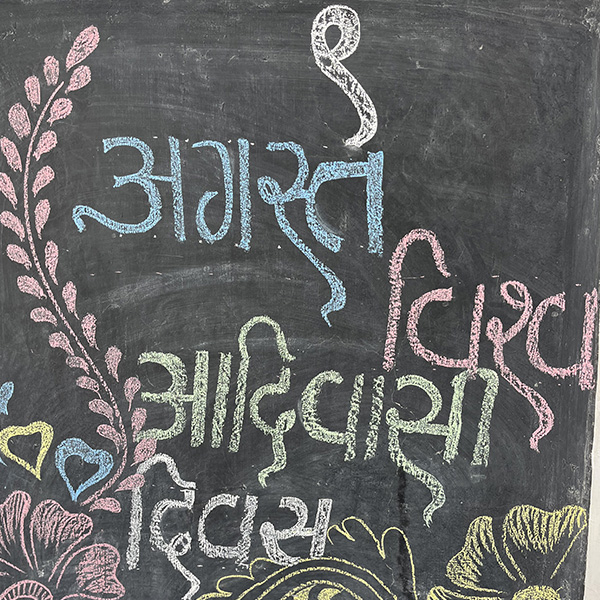 ९
अगस्त
विश्व
आदिवासी
दिवस